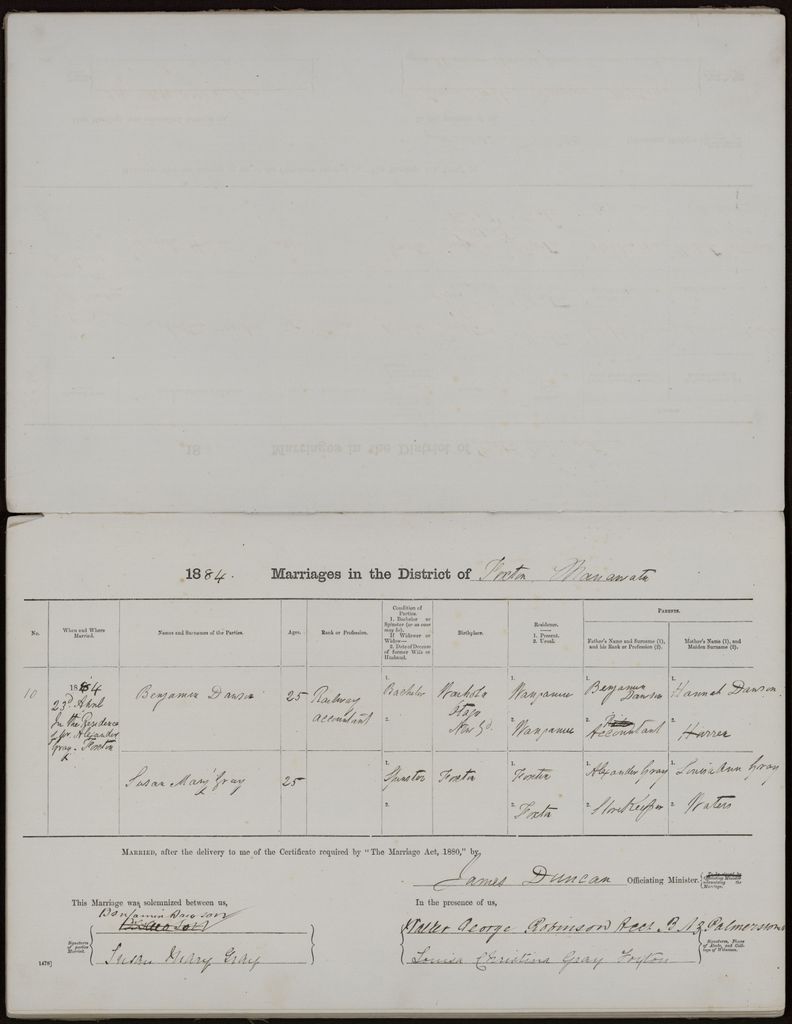 1884. Marriages in the District of Foxton Manawatu
No.
When and Where Married.
Names and Surnames of the Parties.
Ages.
Rank or Profession.
Condition of Parties.
1. Bachelor or Spinster (or as case may be).
If Widower or Widow—
2. Date of Decease of former Wife or Husband.
Birthplace.
Residence.
1. Present.
2. Usual.
PARENTS.
Father's Name and Surname (1), and his Rank or Profession (2).
Mother's Name (1), and Maiden Surname (2).
10
1884
23rd April
In the Residence
of Mr. Alexander
Gray. Foxton
Benjamin Dawson
25
Railway
accountant
1.
Bachelor
2.
Otago
New Zd.
1.
Wanganui
2.
Wanganui
1.
Benjamin
Dawson
2.
Accountant
1.
Hannah Dawson
2.
Susan Mary Gray
25
1.
Spinster
2.
Foxton
1.
Foxton
2.
Foxton
1.
Alexander Gray
2.
Storekeeper
1.
Louisa Ann Gray
2.
Waters
MARRIED, after the delivery to me of the Certificate required by "The Marriage Act, 1880," by,
James Duncan Officiating Minister.
This Marriage was solemnized between us,
Benjamin Dawson
Susan Mary Gray
Signatures of parties Married.
In the presence of us,
Walter George Robinson Acct B N Z Palmerston
Louisa Christina Gray Foxton
Signatures, Places of Abode, and Callings of Witnesses.
1478]